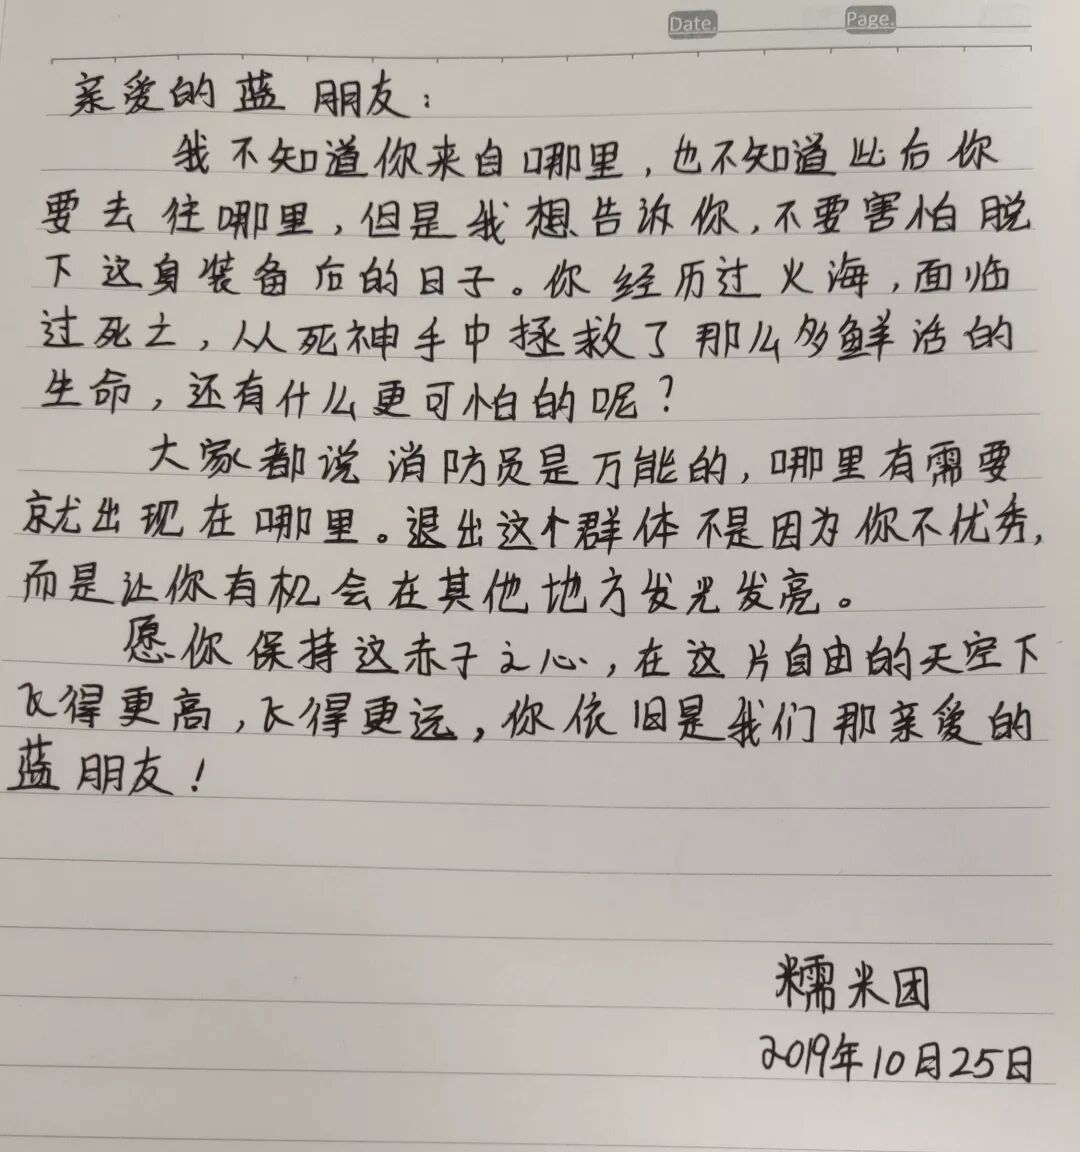 Date.
Page.
亲爱的蓝朋友：
我不知道你来自哪里，也不知道此后你
要去往哪里，但是我想告诉你，不要害怕脱
下这身装备后的日子。你经历过火海，面临
过死亡，从死神手中拯救了那么多鲜活的
生命，还有什么更可怕的呢？
大家都说消防员是万能的，哪里有需要
就出现在哪里。退出这个群体不是因为你不优秀，
而是让你有机会在其他地方发光发亮。
愿你保持这赤子之心，在这片自由的天空下
飞得更高，飞得更远，你依旧是我们那亲爱的
蓝朋友！
糯米团
2019年10月25日